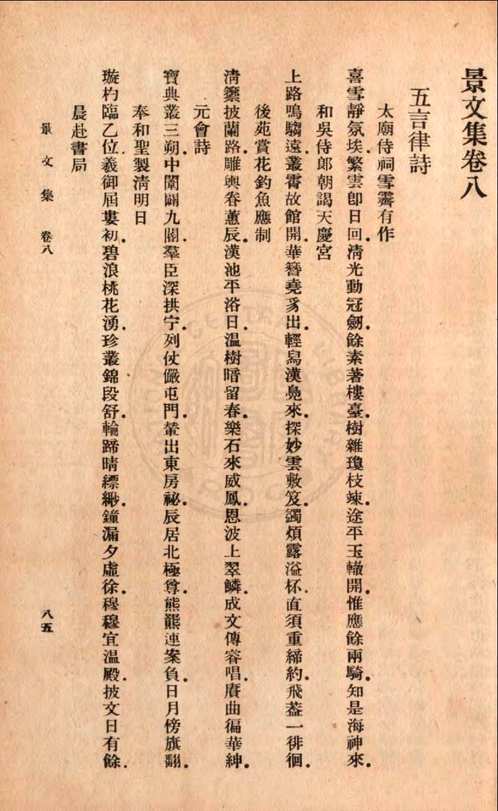 景文集卷八
五言律詩
太廟侍祠雪霽有作
喜雪靜氛埃。繁雲卽日回。淸光動冠劒。餘素著樓臺。樹雜瓊枝竦。途平玉轍開。惟應餘兩騎。知是海神來。
和吳侍郎朝謁天慶宮
上路鳴騶遠。叢霄故館開。華簪堯豸出。輕舄漢鳧來。探妙雲敷笈。蠲煩露溢杯。直須重締約。飛蓋一徘徊。
後苑賞花釣魚應制
淸籞披蘭路。雕輿春蕙辰。漢池平浴日。溫樹暗留春。樂石來威鳳。恩波上翠鱗。成文傳睿唱。賡曲徧華紳。
元會詩
寶典叢三朔。中闈闢九閽。羣臣深拱宁。列仗儼屯門。輦出東房祕。辰居北極尊。熊羆連案負。日月傍旗翻。
奉和聖製淸明日
璇杓臨乙位。羲御屆婁初。碧浪桃花湧。珍叢錦段舒。輪蹄晴縹緲。鐘漏夕虛徐。穆穆宜溫殿。披文日有餘。
晨赴書局
景文集 卷八
八五